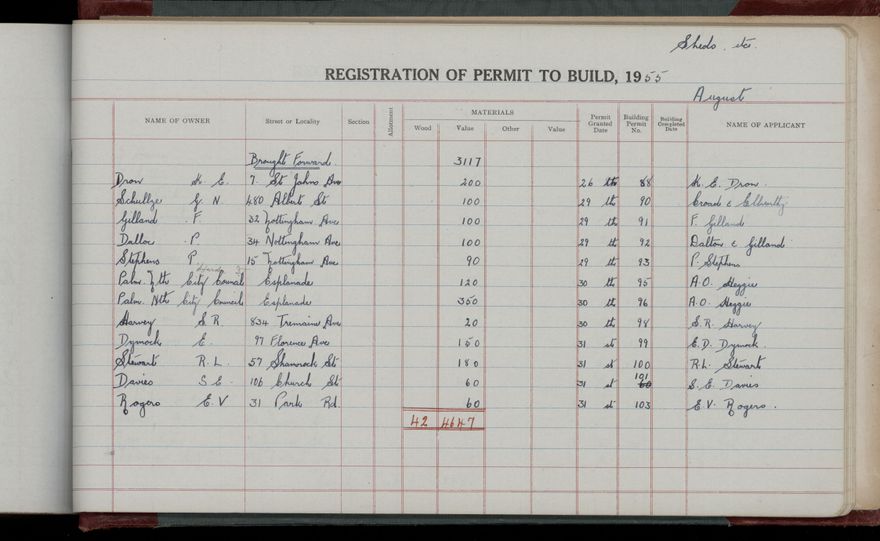 Sheds. etc.
REGISTRATION OF PERMIT TO BUILD, 1955
August
NAME OF OWNER Street or Locality Section Allotment MATERIALS Wood Value Other Value Permit Granted Date Building Permit No. Building Completed Date NAME OF APPLICANT
Brought Forward. 3117
Drow K. E. 7. St Johns Ave 200 26 th 88 K. E. Drow.
Schultze G. N. 480 Albert St 100 29 th 90
Gilland F. 32 Nottingham Ave 100 29 th 91 F. Gilland
P. 34 Nottingham Ave 100 29 th 92 Dalton & Gilland
Stephens P. 15 Nottingham Ave 90 29 th 93 P. Stephens
Palm. Nth City Council Esplanade 120 30 th 95 A.O. Heggie
Palm. Nth City Council Esplanade 350 30 th 96 A.O. Heggie
Harvey S.R. 834 Tremaine Ave 20 30 th 98 S.R. Harvey
Dymock E. 97 Florence Ave 150 31 st 99 E.D. Dymock.
Stewart R.L. 57 Shamrock St 180 31 st 100 R.L. Stewart
Davies S.E. 106 Church St 60 31 st 101 S.E. Davies
Rogers E.V 31 Park Rd. 60 31 st 103 E.V. Rogers.
42 4647